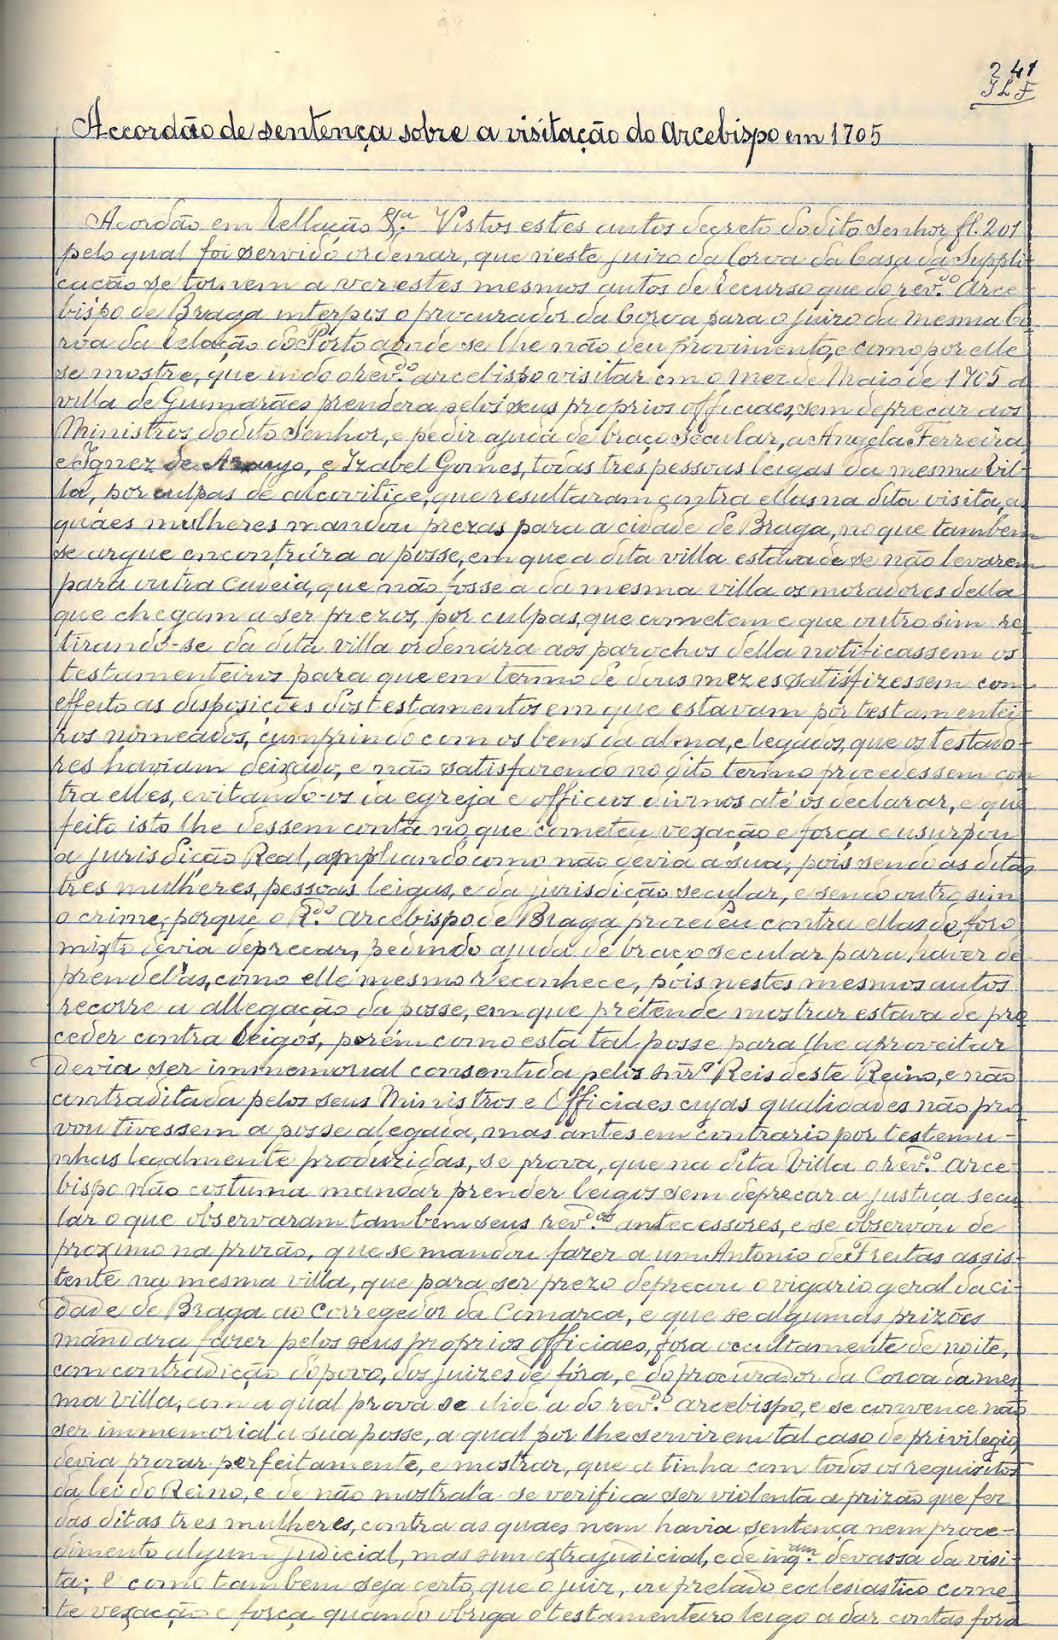 241
J L F
Accordão de sentença sobre a visitação do Arcebispo em 1705
Acordão em Rellação &.ª Vistos estes autos decreto do dito Senhor fl. 201
pelo qual foi servido ordenar, que n'este juizo da Coroa da Casa da Suppli-
cação se tornem a ver estes mesmos autos de recurso que do rev.do Arce-
bispo de Braga interpos o procurador da Coroa para o juizo da mesma Co-
roa da relação do Porto aonde se lhe não deu provimento, e como por elle
se mostre, que indo o rev.do arcebispo visitar em o Mez de Maio de 1705 a
villa de Guimarães prendera pelos seus proprios officiaes, sem deprecar aos
Ministros do dito Senhor, e pedir ajuda de braço secular, a Angela Ferreira,
e Ignez de Araujo, e Izabel Gomes, todas tres pessoas leigas da mesma vil-
la, por culpas de alcovitice, que resultaram contra ellas na dita visita, as
quaes mulheres mandou prezas para a cidade de Braga, no que tambem
se argue encontrára a posse, em que a dita villa estava de se não levarem
para outra cadeia, que não fosse a da mesma villa os moradores della
que chegam a ser prezos, por culpas, que cometem e que outro sim re-
tirando-se da dita villa ordenára aos parochos della notificassem os
testamenteiros para que em termo de dous mezes satisfizessem com
effeito as disposições dos testamentos em que estavam por testamentei-
ros nomeados, cumprindo com os bens da alma, e legados, que os testado-
res haviam deixado, e não satisfazendo no dito termo procedessem con-
tra elles, evitando-os da egreja e officios divinos até os declarar, e que
feito isto lhe dessem conta no, que cometeu vexação e força e usurpou
a jurisdição Real, ampliando como não devia a sua, pois sendo as ditas
tres mulheres, pessoas leigas, e da jurisdição secular, e sendo outro sim
o crime, porque o R.do arcebispo de Braga procedeu contra ellas do foro
mixto devia deprecar, pedindo ajuda de braço secular para haver de
prendel'as, como elle mesmo reconhece, pois nestes mesmos autos
recorre a allegação da posse, em que pretende mostrar estava de pro-
ceder contra leigos, porém como esta tal posse para lhe aproveitar
devia ser immemorial consentida pelos Snr.s Reis deste Reino, e não
contraditada pelos seus Ministros e Officiaes cujas qualidades não pro-
vou tivessem a posse alegada, mas antes em contrario por testemu-
nhas legalmente produzidas, se prova, que na dita Villa o rev.do Arce-
bispo não costuma mandar prender leigos sem deprecar a justiça secu-
lar o que observaram tambem seus rev.dos antecessores, e se observou de
proximo na prizão, que se mandou fazer a um Antonio de Freitas assis-
tente na mesma villa, que para ser prezo deprecou o vigario geral da ci-
dade de Braga ao Corregedor da Comarca, e que se algumas prizões
mandara fazer pelos seus proprios officiaes, fora occultamente de noite,
com contradição do povo, dos juizes de fóra, e do procurador da Coroa da mes-
ma villa, com a qual prova se elide a do rev.do arcebispo, e se convence não
ser immemorial a sua posse, a qual por lhe servir em tal caso de privilegio
devia provar perfeitamente, e mostrar, que a tinha com todos os requisitos
da lei do Reino, e de não mostral'a se verifica ser violenta a prizão que fez
das ditas tres mulheres, contra as quaes nem havia sentença nem proce-
dimento algum judicial, mas sim extrajudicial, e de inq.am devassa da visi-
ta; e como tambem seja certo, que o juiz, ou prelado ecclesiastico come-
te vexação e força quando obriga o testamenteiro leigo a dar contas fora